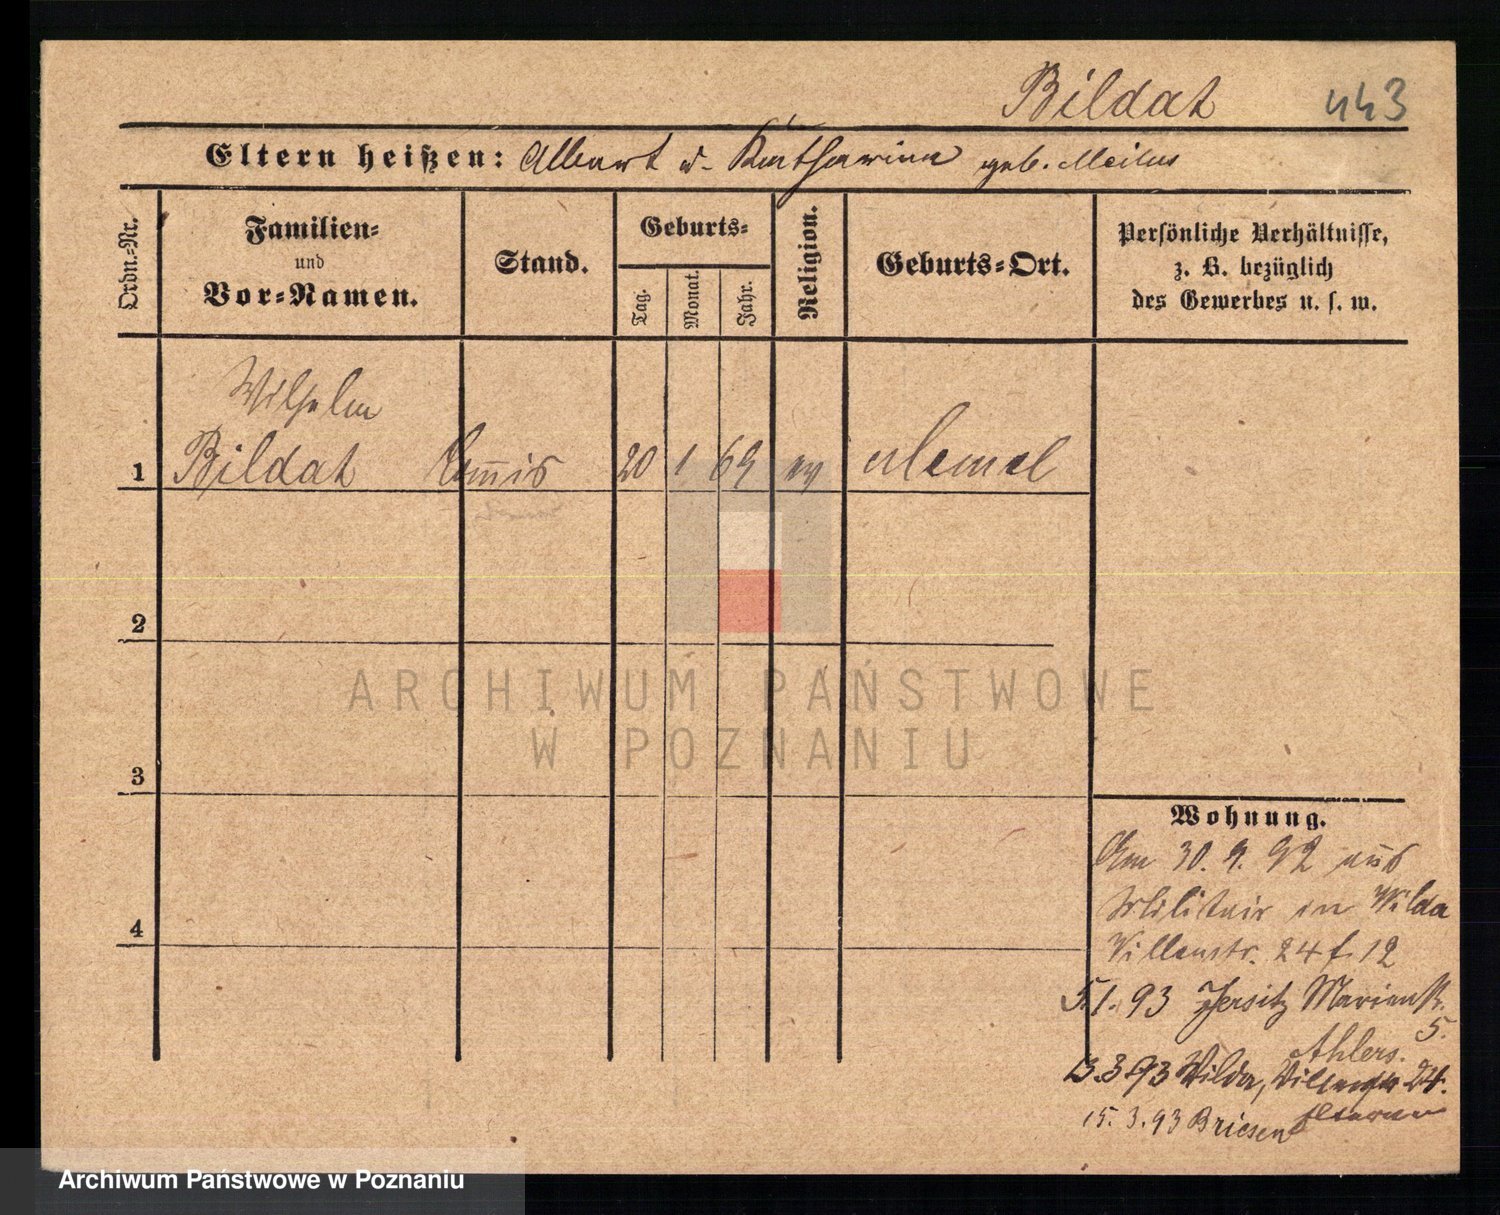 Bildat 443
Eltern heißen: Albert u. Katharina geb. Meilus
Ordn.-Nr.
Familien-
und
Vor-Namen.
Stand.
Geburts-
Tag.
Monat.
Jahr.
Religion.
Geburts-Ort.
Persönliche Verhältnisse,
z. B. bezüglich
des Gewerbes u. s. w.
Wilhelm
1 Bildat Commis 20 1 69 ev Memel
2
3
4
Wohnung.
Am 30. 9. 92 aus
Militair in Wilda
Villenstr. 24 f. 12
5.1.93 Jersitz Marienstr.
5.
Ahlers.
13.3.93 Wilda, Villenstr 24.
15.3.93 Briesen
ARCHIWUM PAŃSTWOWE
W POZNANIU
Archiwum Państwowe w Poznaniu